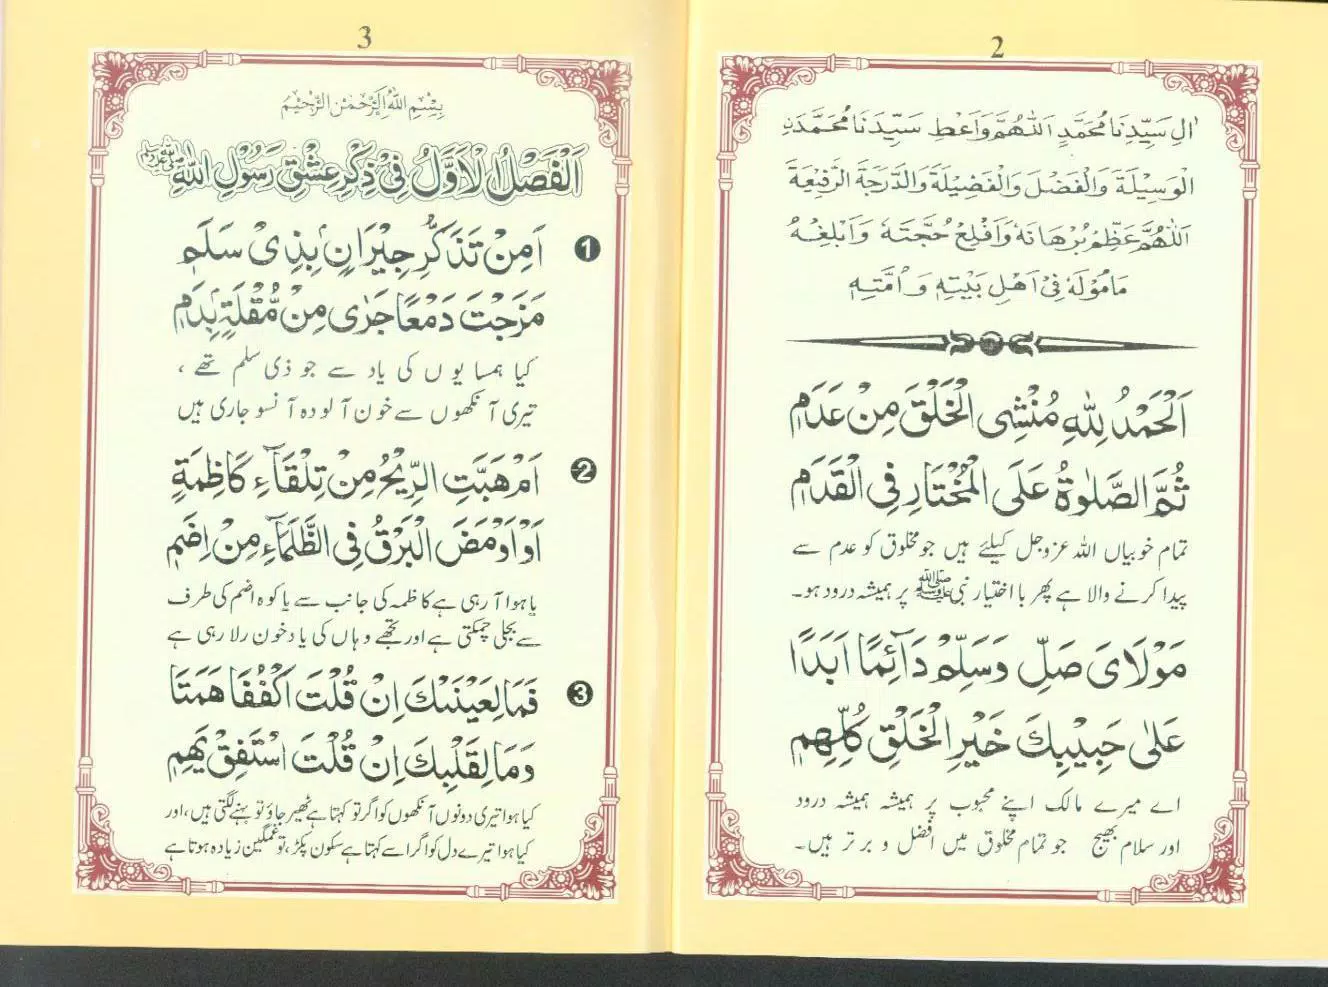 2
اٰلِ سَیِّدِنَا مُحَمَّدٍ اَللّٰهُمَّ وَاَعْطِ سَیِّدَنَا مُحَمَّدَنِ
الْوَسِیْلَةَ وَالْفَضْلَ وَالْفَضِیْلَةَ وَالدَّرَجَةَ الرَّفِیْعَةَ
اَللّٰهُمَّ عَظِّمْ بُرْهَانَهٗ وَاَفْلِجْ حُجَّتَهٗ وَاَبْلِغْهُ
مَامُوْلَهٗ فِیْ اَهْلِ بَیْتِهٖ وَاُمَّتِهٖ
اَلْحَمْدُ لِلّٰهِ مُنْشِی الْخَلْقِ مِنْ عَدَمٖ
ثُمَّ الصَّلٰوةُ عَلَی الْمُخْتَارِ فِی الْقَدَمٖ
تمام خوبیاں اللہ عزوجل کیلئے ہیں جو مخلوق کو عدم سے
پیدا کرنے والا ہے پھر بااختیار نبی ﷺ پر ہمیشہ درود ہو۔
مَوْلَایَ صَلِّ وَسَلِّمْ دَآئِمًا اَبَدًا
عَلٰی حَبِیْبِكَ خَیْرِ الْخَلْقِ کُلِّهِمٖ
اے میرے مالک اپنے محبوب پر ہمیشہ ہمیشہ درود
اور سلام بھیج جو تمام مخلوق میں افضل و برتر ہیں۔
3
بِسْمِ اللّٰهِ الرَّحْمٰنِ الرَّحِیْمِ
اَلْفَصْلُ الْاَوَّلُ فِیْ ذِکْرِ عِشْقِ رَسُوْلِ اللّٰهِ ﷺ
1 اَمِنْ تَذَکُّرِ جِیْرَانٍ بِذِیْ سَلَمٖ
مَزَجْتَ دَمْعًا جَرٰی مِنْ مُّقْلَةٍ بِدَمٖ
کیا ہمسایوں کی یاد سے جو ذی سلم تھے ،
تیری آنکھوں سے خون آلودہ آنسو جاری ہیں
2 اَمْ هَبَّتِ الرِّیْحُ مِنْ تِلْقَآءِ کَاظِمَةٍ
اَوْ اَوْمَضَ الْبَرْقُ فِی الظَّلْمَآءِ مِنْ اِضَمٖ
یا ہوا آرہی ہے کاظمہ کی جانب سے یا کوہ اضم کی طرف
سے بجلی چمکتی ہے اور تجھے وہاں کی یاد خون رلا رہی ہے
3 فَمَا لِعَیْنَیْكَ اِنْ قُلْتَ اکْفُفَا هَمَتَا
وَمَا لِقَلْبِكَ اِنْ قُلْتَ اسْتَفِقْ یَهِمٖ
کیا ہوا تیری دونوں آنکھوں کو اگر تو کہتا ہے ٹھیر جاؤ تو بہنے لگتی ہیں ، اور
کیا ہوا تیرے دل کو اگر اسے کہتا ہے سکون پکڑ، تو غمگین زیادہ ہوتا ہے